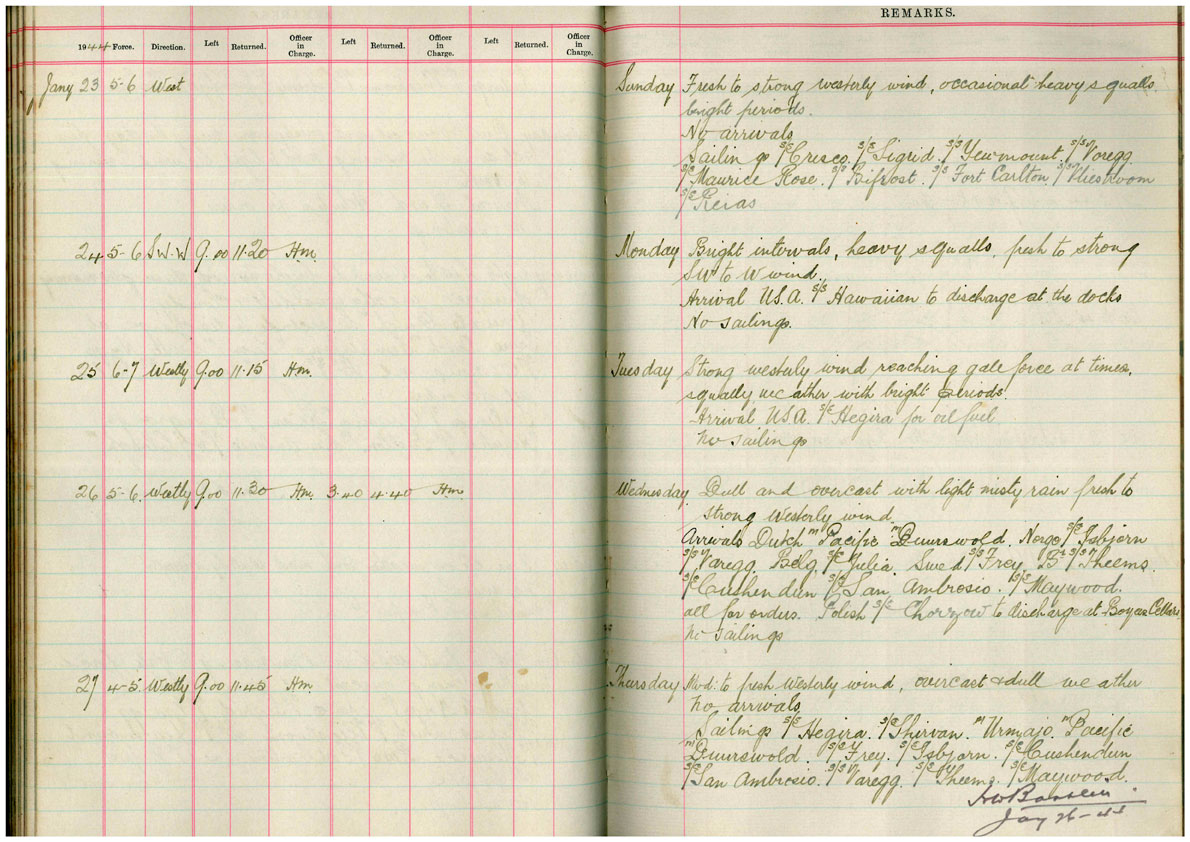 REMARKS.
1944 Force. Direction. Left Returned. Officer in Charge. Left Returned. Officer in Charge. Left Returned. Officer in Charge.
Jany 23 5-6 West
Sunday Fresh to strong westerly wind, occasional heavy squalls
bright periods.
No arrivals
Sailings S/S Crisco. S/S Sigrid. S/S Yewmount. S/S Varegg
S/S Maurice Rose. S/S Bifrost. S/S Fort Carlton. S/S Vliestroom
S/S
24 5-6 SW.W 9.00 11.20 Hm.
Monday Bright intervals, heavy squalls, fresh to strong
SW to W wind.
Arrival U.S.A. S/S Hawaiian to discharge at the docks
No sailings.
25 6-7 Westly 9.00 11.15 Hm.
Tuesday Strong westerly wind reaching gale force at times,
squally weather with bright periods.
Arrival U.S.A. S/S Hegira for oil fuel.
No sailings
26 5-6. Westly 9.00 11.30 Hm. 3.40 4.40 Hm
Wednesday. Dull and overcast with light misty rain fresh to
strong Westerly wind.
Arrivals Dutch M Pacific M Duurswold. Norge S/S Isbjorn
S/S Varegg. Belg. S/S Julia. Swed S/S Frey. Bt S/S Theems.
S/S Cushendun S/S San Ambrosio. S/S Maywood.
all for orders. Polish S/S Chorzow to discharge at Boyces Cellars
No sailings
27 4-5. Westly 9.00 11.45 Hm.
Thursday Mod: to fresh Westerly wind, overcast & dull weather
No arrivals
Sailings S/S Hegira. S/S Shirvan. M Urmajo. M Pacific
M Duurswold. S/S Frey. S/S Isbjorn. S/S Cushendun
S/S San Ambrosio. S/S Varegg. S/S Theems. S/S Maywood.